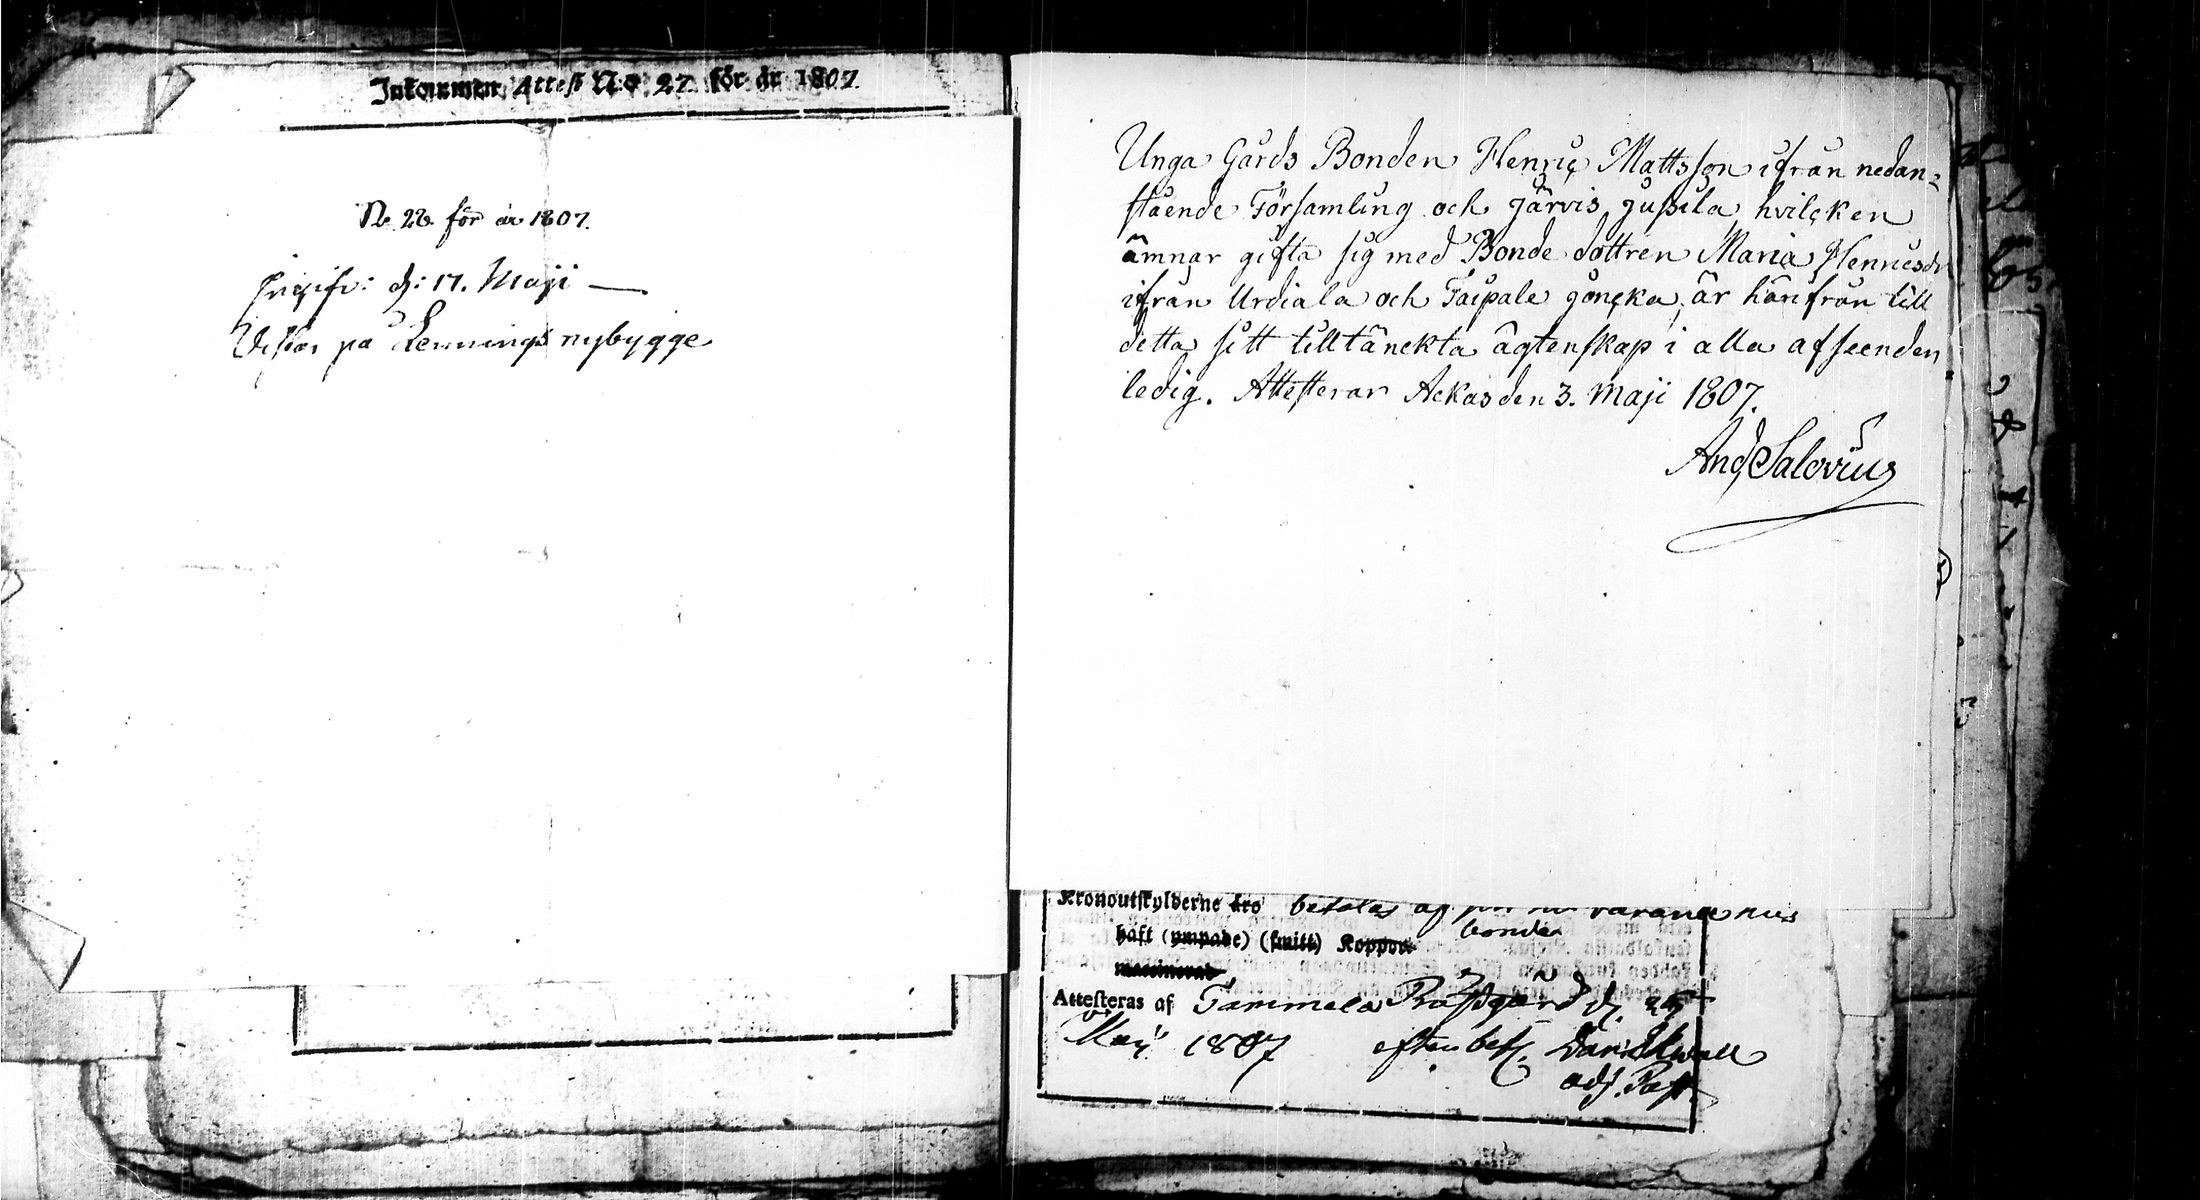 Inkommen Attest N:o 27 för år 1807.
No 28 för år 1807.
d: 17. Maji —
på Lennings nybygge
Unga Gårds Bonden Henric Mattsson ifrån nedan=
stående Församling och Järvis Jussila hvilcken
ämnar gifta sig med Bonde dottren Maria Henricsdr
ifrån Urdiala och Taipale Joncka, är härifrån till
detta sitt tilltänckta ägtenskap i alla afseenden
ledig. Attesterar Ackas den 3. Maji 1807.
And Salovius
Kronoutskylderne äro betalas af varande hus
bonde
haft (ympade) (smitt) Koppor
Attesteras af Tammela Prästgård d. 25
Maji 1807 efter bef.
adj. Past.